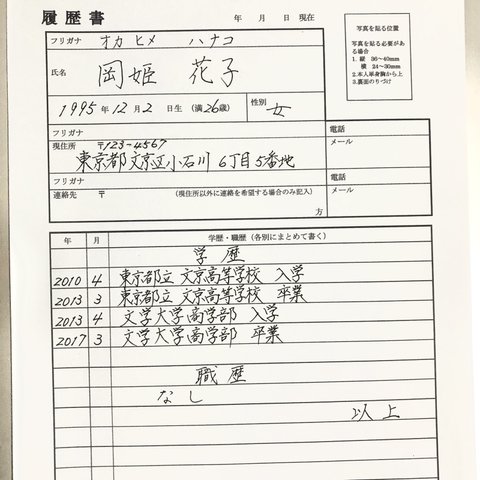 履歴書 年 月 日 現在
写真を貼る位置
写真を貼る必要があ
る場合
1. 縦 36～40mm
横 24～30mm
2.本人単身胸から上
3.裏面のりづけ
フリガナ オカ ヒメ ハナコ
氏名 岡姫 花子
1995 年 12 月 2 日生 (満 26 歳) 性別 女
フリガナ 電話
現住所 〒123-4567 メール
東京都文京区小石川 6丁目5番地
フリガナ 電話
連絡先 〒 (現住所以外に連絡を希望する場合のみ記入) メール
方
年 月 学歴・職歴 (各別にまとめて書く)
学歴
2010 4 東京都立 文京高等学校 入学
2013 3 東京都立 文京高等学校 卒業
2013 4 文学大学商学部 入学
2017 3 文学大学商学部 卒業
職歴
なし
以上